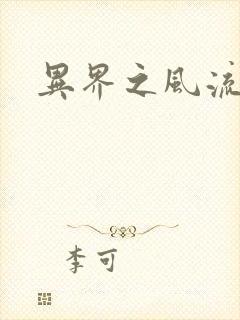 異界之風流
李可